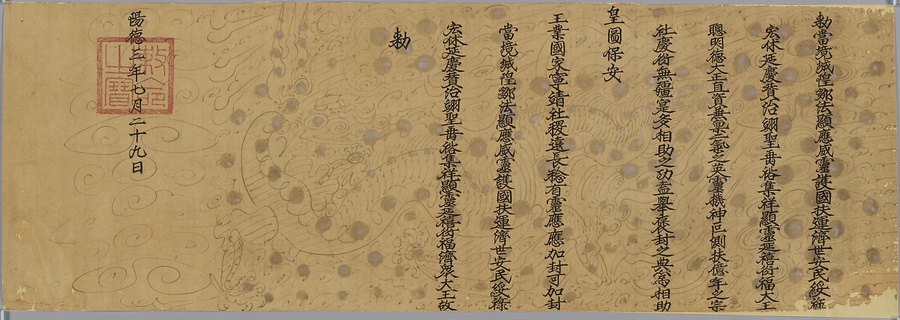 敕當境城隍鄒法顯應感靈護國扶運濟世安民綏祿
宏休延慶賛治翊聖垂裕集祥顯靈延禧衍福大王
聰明德大正直資兼稟二氣之英靈機神叵測扶億年之宗
社慶衍無疆寔多相助之功盍舉褒封之典爲相助
皇圖保安
王業國家寧靖社稷遠長稔有靈應應加封可加封
當境城隍鄒法顯應感靈護國扶運濟世安民綏祿
宏休延慶賛治翊聖垂裕集祥顯靈延禧衍福濟衆大王故
敕
陽德三年七月二十九日
敕命之寶